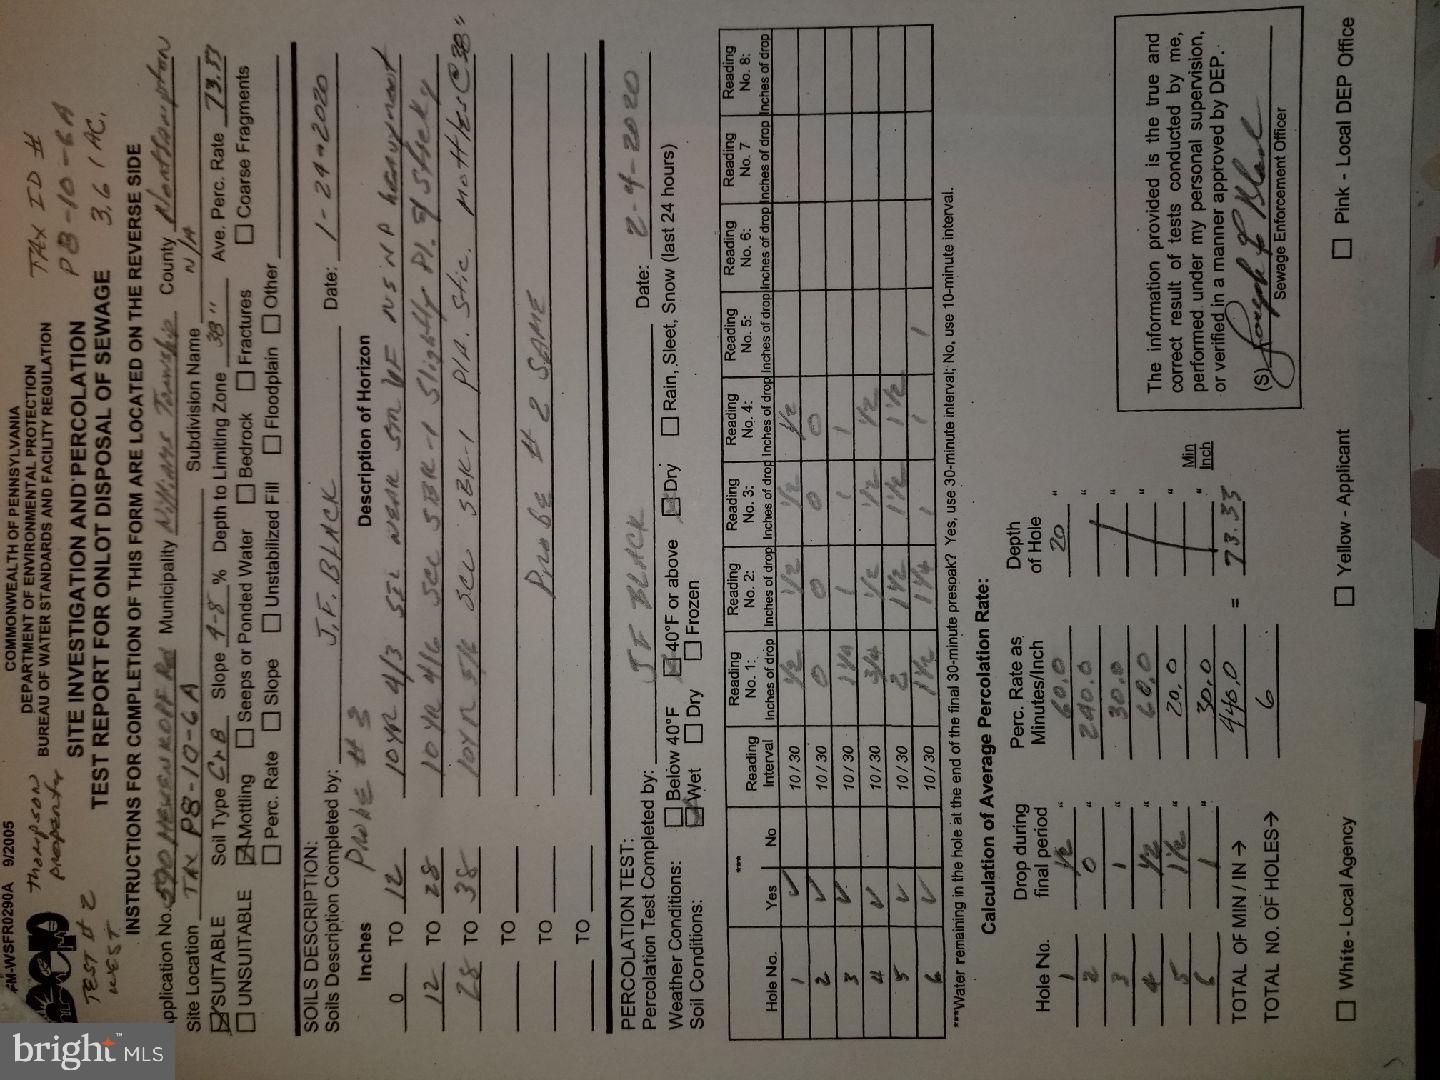 AM-WSFR0290A 9/2005
COMMONWEALTH OF PENNSYLVANIA
DEPARTMENT OF ENVIRONMENTAL PROTECTION
BUREAU OF WATER STANDARDS AND FACILITY REGULATION
dep
Thompson Property
TEST # 2
WEST
TAX ID #
P8-10-6A
3.61 AC.
SITE INVESTIGATION AND PERCOLATION
TEST REPORT FOR ONLOT DISPOSAL OF SEWAGE
INSTRUCTIONS FOR COMPLETION OF THIS FORM ARE LOCATED ON THE REVERSE SIDE
Application No. Municipality Williams Township County Northampton
Site Location TAX P8-10-6A Subdivision Name N/A
SUITABLE Soil Type CrB Slope 4-8 % Depth to Limiting Zone 38" Ave. Perc. Rate 73.33
UNSUITABLE Mottling Seeps or Ponded Water Bedrock Fractures Coarse Fragments
Perc. Rate Slope Unstabilized Fill Floodplain Other
SOILS DESCRIPTION:
Soils Description Completed by: J.F. BLACK Date: 1-24-2020
Inches PROBE # 3 Description of Horizon
0 TO 12 10YR 4/3 SIL WEAK SM NS NP
12 TO 28 10YR 4/6 SCL SBK-1 Slightly Pl. & Sticky
28 TO 38 10YR 5/6 SCL SBK-1 Pla. Stic. Mottles @ 38"
TO
TO Probe # 2 SAME
TO
PERCOLATION TEST:
Percolation Test Completed by: JF BLACK Date: 2-4-2020
Weather Conditions: Below 40°F 40°F or above Dry Rain, Sleet, Snow (last 24 hours)
Soil Conditions: Wet Dry Frozen
Hole No. *** Yes No Reading Interval Reading No. 1: Inches of drop Reading No. 2: Inches of drop Reading No. 3: Inches of drop Reading No. 4: Inches of drop Reading No. 5: Inches of drop Reading No. 6: Inches of drop Reading No. 7 Inches of drop Reading No. 8: Inches of drop
1 ✓ 10 / 30 1/2 1/2 1/2 1/2
2 ✓ 10 / 30 0 0 0 0
3 ✓ 10 / 30 1 1/4 1 1 1
4 ✓ 10 / 30 3/4 1/2 1/2 1/2
5 ✓ 10 / 30 2 1 1/2 1 1/2 1 1/2
6 ✓ 10 / 30 1 1/2 1 1/4 1 1 1
***Water remaining in the hole at the end of the final 30-minute presoak? Yes, use 30-minute interval; No, use 10-minute interval.
Calculation of Average Percolation Rate:
Hole No. Drop during final period Perc. Rate as Minutes/Inch Depth of Hole
1 1/2 " 60.0 20 "
2 0 " 240.0 "
3 1 " 30.0 "
4 1/2 " 60.0 "
5 1 1/2 " 20.0 "
6 1 " 30.0 "
TOTAL OF MIN / IN → 440.0 = 73.33 Min Inch
TOTAL NO. OF HOLES→ 6
The information provided is the true and
correct result of tests conducted by me,
performed under my personal supervision,
or verified in a manner approved by DEP.
(S) Joseph F Black
Sewage Enforcement Officer
White - Local Agency Yellow - Applicant Pink - Local DEP Office
bright MLS